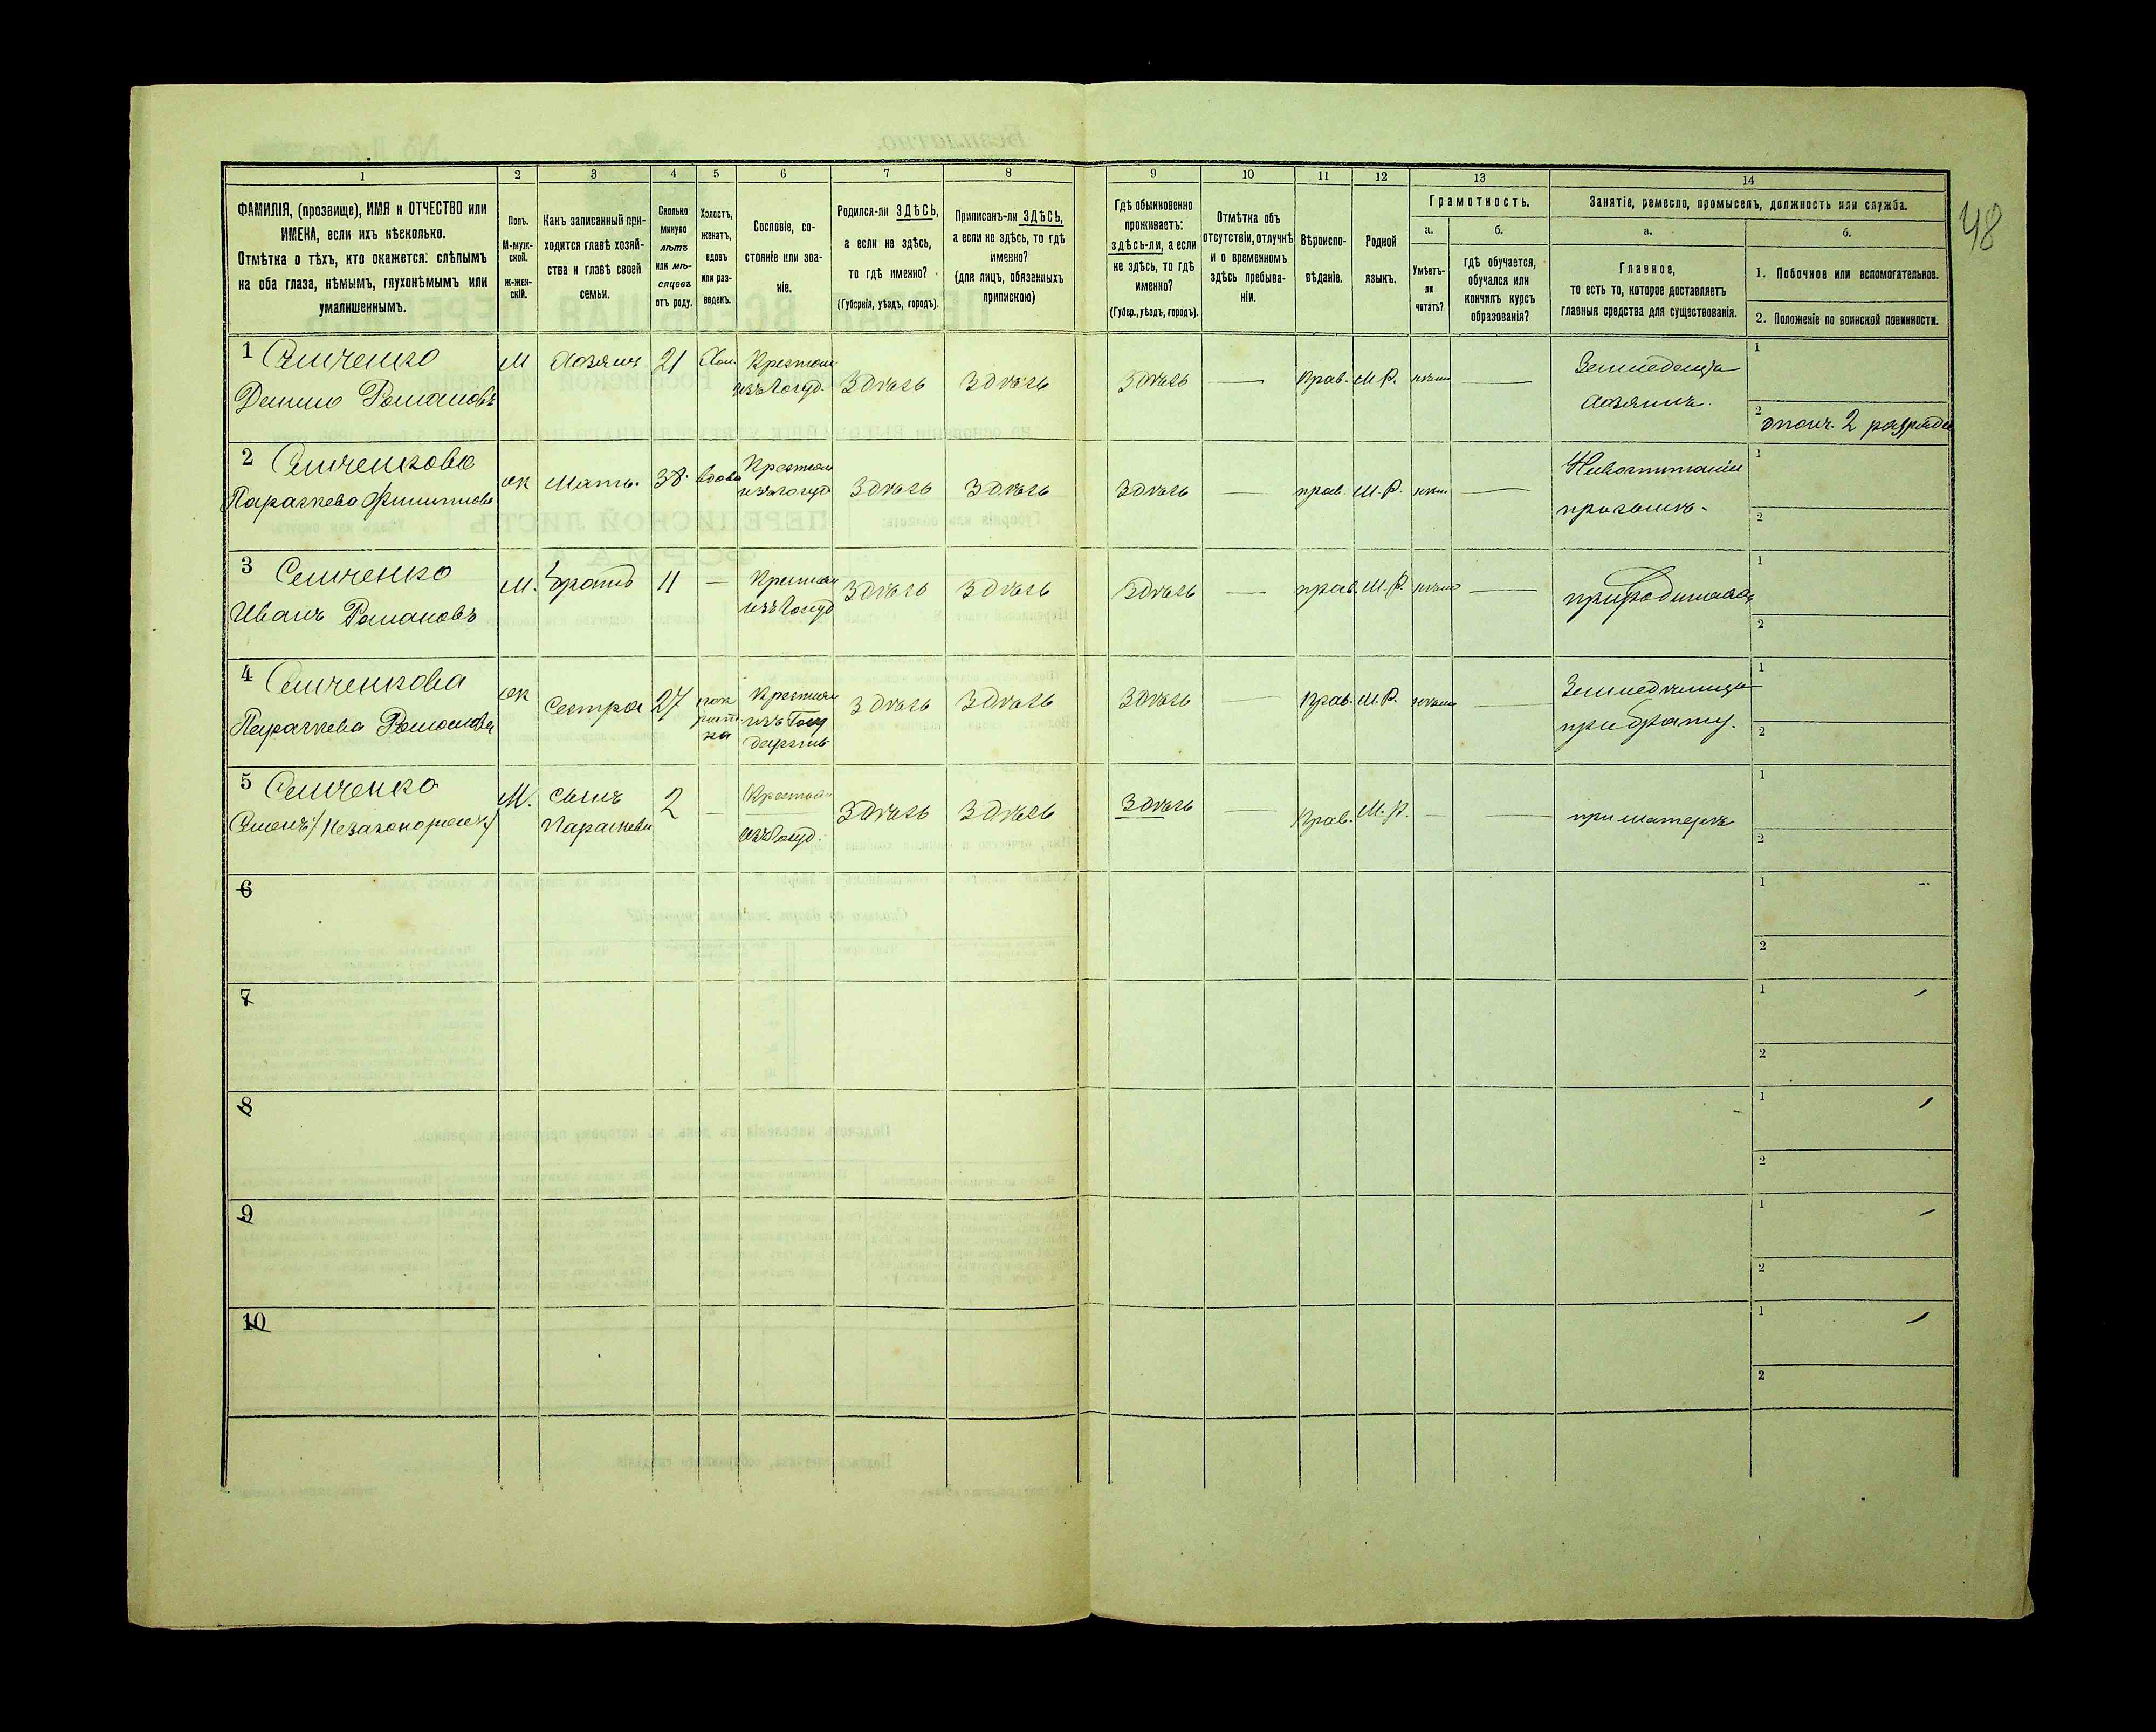 48
1 2 3 4 5 6 7 8 9 10 11 12 13 14
ФАМИЛІЯ, (прозвище), ИМЯ и ОТЧЕСТВО или
ИМЕНА, если ихъ нѣсколько.
Отмѣтка о тѣхъ, кто окажется: слѣпымъ
на оба глаза, нѣмымъ, глухонѣмымъ или
умалишеннымъ.
Полъ.
М-муж-
ской.
ж-жен-
скій.
Какъ записанный при-
ходится главѣ хозяй-
ства и главѣ своей
семьи.
Сколько
минуло
лѣтъ
или мѣ-
сяцевъ
отъ роду.
Холостъ,
женатъ,
вдовъ
или раз-
веденъ.
Сословіе, со-
стояніе или зва-
ніе.
Родился-ли ЗДѢСЬ,
а если не здѣсь,
то гдѣ именно?
(Губернія, уѣздъ, городъ).
Приписанъ-ли ЗДѢСЬ,
а если не здѣсь, то гдѣ
именно?
(для лицъ, обязанныхъ
припискою)
Гдѣ обыкновенно
проживаетъ:
здѣсь-ли, а если
не здѣсь, то гдѣ
именно?
(Губер., уѣздъ, городъ).
Отмѣтка объ
отсутствіи, отлучкѣ
и о временномъ
здѣсь пребыва-
ніи.
Вѣроиспо-
вѣданіе.
Родной
языкъ.
Грамотность.
а.
Умѣетъ-
ли
читать?
б.
гдѣ обучается,
обучался или
кончилъ курсъ
образованія?
Занятіе, ремесло, промыселъ, должность или служба.
а.
Главное,
то есть то, которое доставляетъ
главныя средства для существованія.
б.
1. Побочное или вспомогательное.
2. Положеніе по воинской повинности.
1 Семченко М Хозяинъ 21 Хол. Крестьян Здѣсь Здѣсь Здѣсь — Прав. М.Р. — 1
Романовъ изъ Госуд. Хозяинъ. 2 ополч. 2 разряда
2 Семченкова ж Мать. 38 вдова Крестьян Здѣсь Здѣсь Здѣсь — прав. М.Р. — 1
Параскева Филиппова изъ Госуд. 2
3 Семченко М. Братъ 11 — Крестьян Здѣсь Здѣсь Здѣсь — прав. М.Р. — 1
Иванъ Романовъ изъ Госуд 2
4 Семченкова ж Сестра 27 пок Крестьян Здѣсь Здѣсь Здѣсь — Прав. М.Р. — 1
Параскева Романова рыт изъ Госу при брату. 2
ка дарств
5 Семченко М. сынъ 2 — Крестьян Здѣсь Здѣсь Здѣсь — Прав. М.Р. — — при матери 1
Семенъ / Незаконорожд / Параскевы изъ Госуд. 2
6 1
2
7 1
2
8 1
2
9 1
2
10 1
2